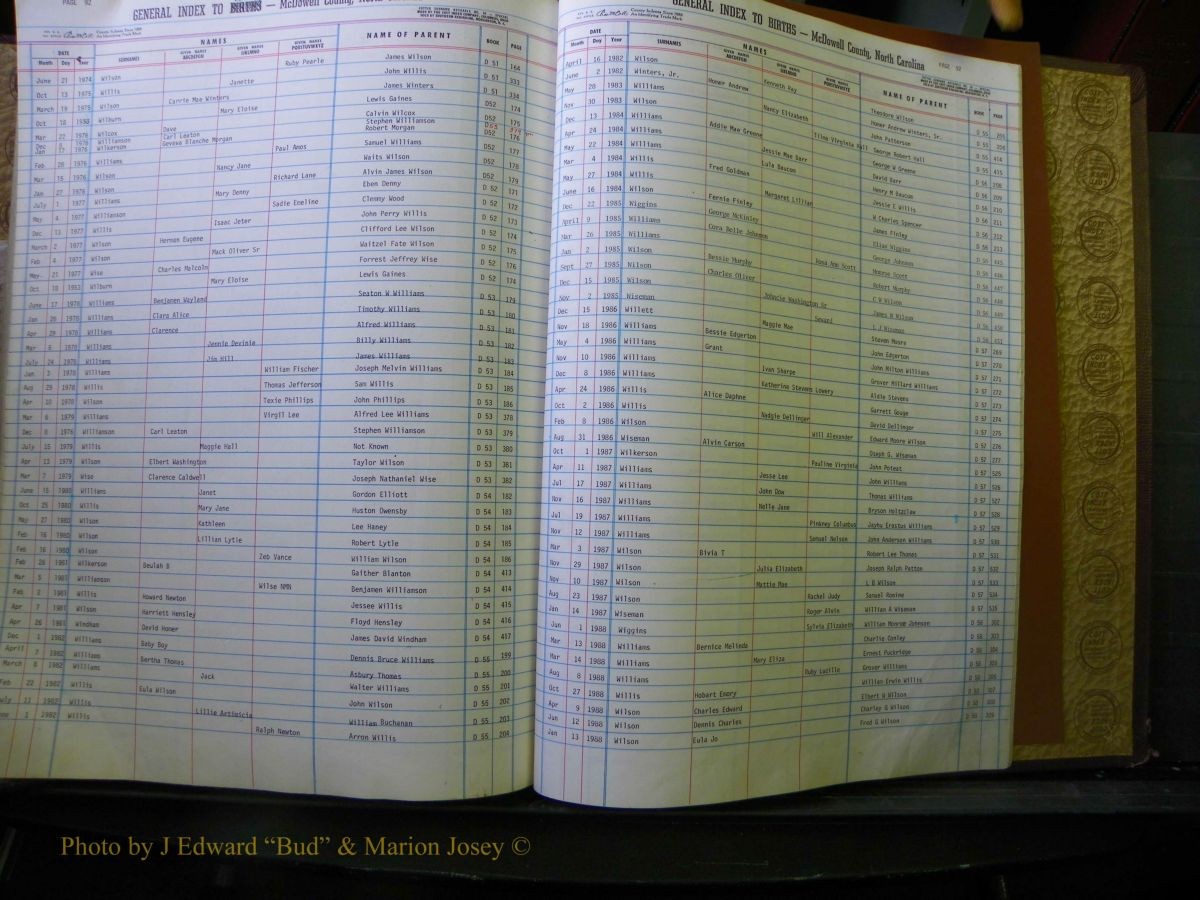 PAGE 92
GENERAL INDEX TO BIRTHS — McDowell County, North
NAMES
NAME OF PARENT
BOOK PAGE
DATE
Month Day Year SURNAMES
June 21 1974 Wilson Ruby Pearle James Wilson D 51 164
Oct 13 1975 Willis Janette John Willis D 51 333
March 19 1975 Wilson Carrie Mae Winters James Winters D 51 334
Oct 18 Wilburn Mary Eloise Lewis Gaines D52
Mar 22 1976 Wilcox Dave Calvin Wilcox D52 175
Dec Williamson Carl Leaton Stephen Williamson
Jan Wilkerson Geveva Blanche Morgan Robert Morgan D52 176
Feb 28 1976 Williams Paul Amos Samuel Williams D52 177
Mar 15 1976 Wilson Nancy Jane Waits Wilson D52 178
Jan 27 1976 Wilson Richard Lane Alvin James Wilson D52 179
July 1 1977 Williams Mary Denny Eben Denny D 52 171
May 4 1977 Williamson Sadie Emeline Clemmy Wood D 52 172
Dec 13 1977 Willis Isaac Jeter John Perry Willis D 52 173
March 2 1977 Wilson Herman Eugene Clifford Lee Wilson D 52 174
Feb 4 1977 Wilson Mack Oliver Sr Waitzel Fate Wilson D 52 175
May 21 1977 Wise Charles Malcolm Forrest Jeffrey Wise D 52 176
Oct 18 Wilburn Mary Eloise Lewis Gaines D 52 174
June 17 1978 Williams Benjamen Wayland Seaton W Williams D 53 179
Jan 26 1978 Williams Clara Alice Timothy Williams D 53 180
Apr 29 1978 Williams Clarence Alfred Williams D 53 181
Mar 6 1978 Williams Jennie Devinie Billy Williams D 53 182
July 24 1978 Williams Jim Hill James Williams D 53 183
Jan 2 1978 Williams William Fischer Joseph Melvin Williams D 53 184
Aug 29 1978 Willis Thomas Jefferson Sam Willis D 53 185
Apr 10 1978 Wilson Texie Phillips John Phillips D 53 186
Mar 6 1979 Williams Virgil Lee Alfred Lee Williams D 53 378
Dec 8 1976 Williamson Carl Leaton Stephen Williamson D 53 379
July 15 1979 Willis Maggie Hall Not Known D 53 380
Apr 13 1979 Wilson Elbert Washington Taylor Wilson D 53 381
Mar 7 1979 Wise Clarence Caldwell Joseph Nathaniel Wise D 53 382
June 15 1980 Williams Janet Gordon Elliott D 54 182
Oct 25 1980 Willis Mary Jane Huston Owensby D 54 183
May 27 1980 Wilson Kathleen Lee Haney D 54 184
Feb 16 1980 Wilson Lillian Lytle Robert Lytle D 54 185
Feb 16 1980 Wilson Zeb Vance William Wilson D 54 186
Feb 26 1981 Wilkerson Beulah B Gaither Blanton D 54 413
Mar 5 1981 Williamson Wilse NMN Benjamen Williamson D 54 414
Feb 2 1981 Willis Howard Newton Jessee Willis D 54 415
Apr 7 1981 Wilson Harriett Hensley Floyd Hensley D 54 416
Apr 26 1981 Windham David Homer James David Windham D 54 417
Dec 1 1982 Williams Baby Boy Dennis Bruce Williams D 55 199
April 7 1982 Williams Bertha Thomas Asbury Thomas D 55 200
March 8 1982 Williams Jack Walter Williams D 55 201
Feb 22 1982 Willis Eula Wilson John Wilson D 55 202
1982 Willis Lillie William Buchanan D 55 203
1 1982 Willis Ralph Newton Arron Willis D 55 204
GENERAL INDEX TO BIRTHS — McDowell County, North Carolina
PAGE 92
DATE
NAMES
Month Day Year SURNAMES
NAME OF PARENT
BOOK PAGE
April 16 1982 Wilson Kenneth Theodore Wilson D 55 205
June 2 1982 Winters, Jr. Homer Andrew Homer Andrew Winters, Sr. D 55 206
May 28 1983 Williams Nancy Elizabeth John Patterson D 55 414
Nov 30 1983 Wilson Tilda Virginia Hall George Robert Hall D 55 415
Dec 13 1984 Williams Addie Mae Greene George W Greene D 56
Apr 24 1984 Williams Jessie Mae Barr David Barr D 56 209
May 22 1984 Williams Lula Baucom Henry M Baucom D 56 210
Mar 4 1984 Willis Fred Goldman Jessie E Willis D 56 211
May 27 1984 Willis Margaret Lillian W Charles Spencer D 56 212
June 16 1984 Wilson Fernie Finley James Finley D 56 213
Dec 22 1985 Wiggins George McKinley Elias Wiggins D 56 445
April 9 1985 Williams Cora Belle Johnson George Johnson D 56 446
Mar 26 1985 Williams Iona Ann Scott Monroe Scott D 56 447
Jan 2 1985 Wilson Bessie Murphy Robert Murphy D 56 448
Sept 27 1985 Wilson Charles Oliver C W Wilson D 56 449
Dec 15 1985 Wilson Johncie Washington Sr James W Wilson D 56 450
Nov 2 1985 Wiseman Seward L J Wiseman D 56 451
Dec 15 1986 Willett Maggie Mae Steven Moore D 57 269
Nov 18 1986 Williams Bessie Edgerton John Edgerton D 57 270
May 4 1986 Williams Grant John Milton Williams D 57 271
Nov 10 1986 Williams Ivan Sharpe Grover Hillard Williams D 57 272
Dec 8 1986 Williams Katherine Stevens Lowery Aldie Stevens D 57 273
Apr 24 1986 Willis Alice Daphne Garrett Gouge D 57 274
Oct 2 1986 Willis Nadgie Dellinger David Dellinger D 57 275
Feb 8 1986 Wilson Will Alexander Edward Moore Wilson D 57 276
Aug 31 1986 Wiseman Alvin Carson Joseph G. Wiseman D 57 277
Oct 1 1987 Wilkerson Pauline Virginia John Poteat D 57 525
Apr 11 1987 Williams Jesse Lee John Williams D 57 526
Jul 17 1987 Williams John Dow Thomas Williams D 57 527
Nov 16 1987 Williams Nelle Jane Bryson Holtzclaw D 57 528
Jul 19 1987 Williams Pinkney Columbus Jayhu Erastus Williams D 57 529
Nov 12 1987 Williams Samuel Nelson John Anderson Williams D 57 530
Mar 3 1987 Wilson Bivia T Robert Lee Thomas D 57 531
Nov 29 1987 Wilson Julia Elizabeth Joseph Ralph Patton D 57 532
Nov 10 1987 Wilson Mattie Mae L B Wilson D 57 533
Aug 23 1987 Wilson Rachel Judy Samuel Romine D 57 534
Jan 14 1987 Wiseman Roger Alvin William A Wiseman D 57 535
Jun 1 1988 Wiggins Sylvia Elizabeth William Monroe Johnson D 58 302
Mar 13 1988 Williams Bernice Melinda Charlie Conley D 58 303
Mar 14 1988 Williams Mary Eliza Ernest Puckridge D 58 304
Aug 8 1988 Williams Ruby Lucille Grover Williams D 58
Oct 27 1988 Willis Hobart Emory William Erwin Willis D 58
Apr 9 1988 Wilson Charles Edward Elbert H Wilson D 58 307
Jun 12 1988 Wilson Dennis Charles Charley G Wilson D 58
Jan 13 1988 Wilson Eula Jo Fred G Wilson D 58
Photo by J Edward “Bud” & Marion Josey ©